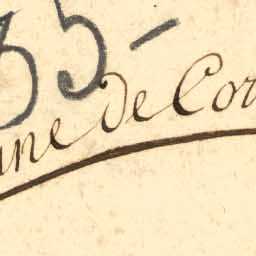 35-
ne de Cor